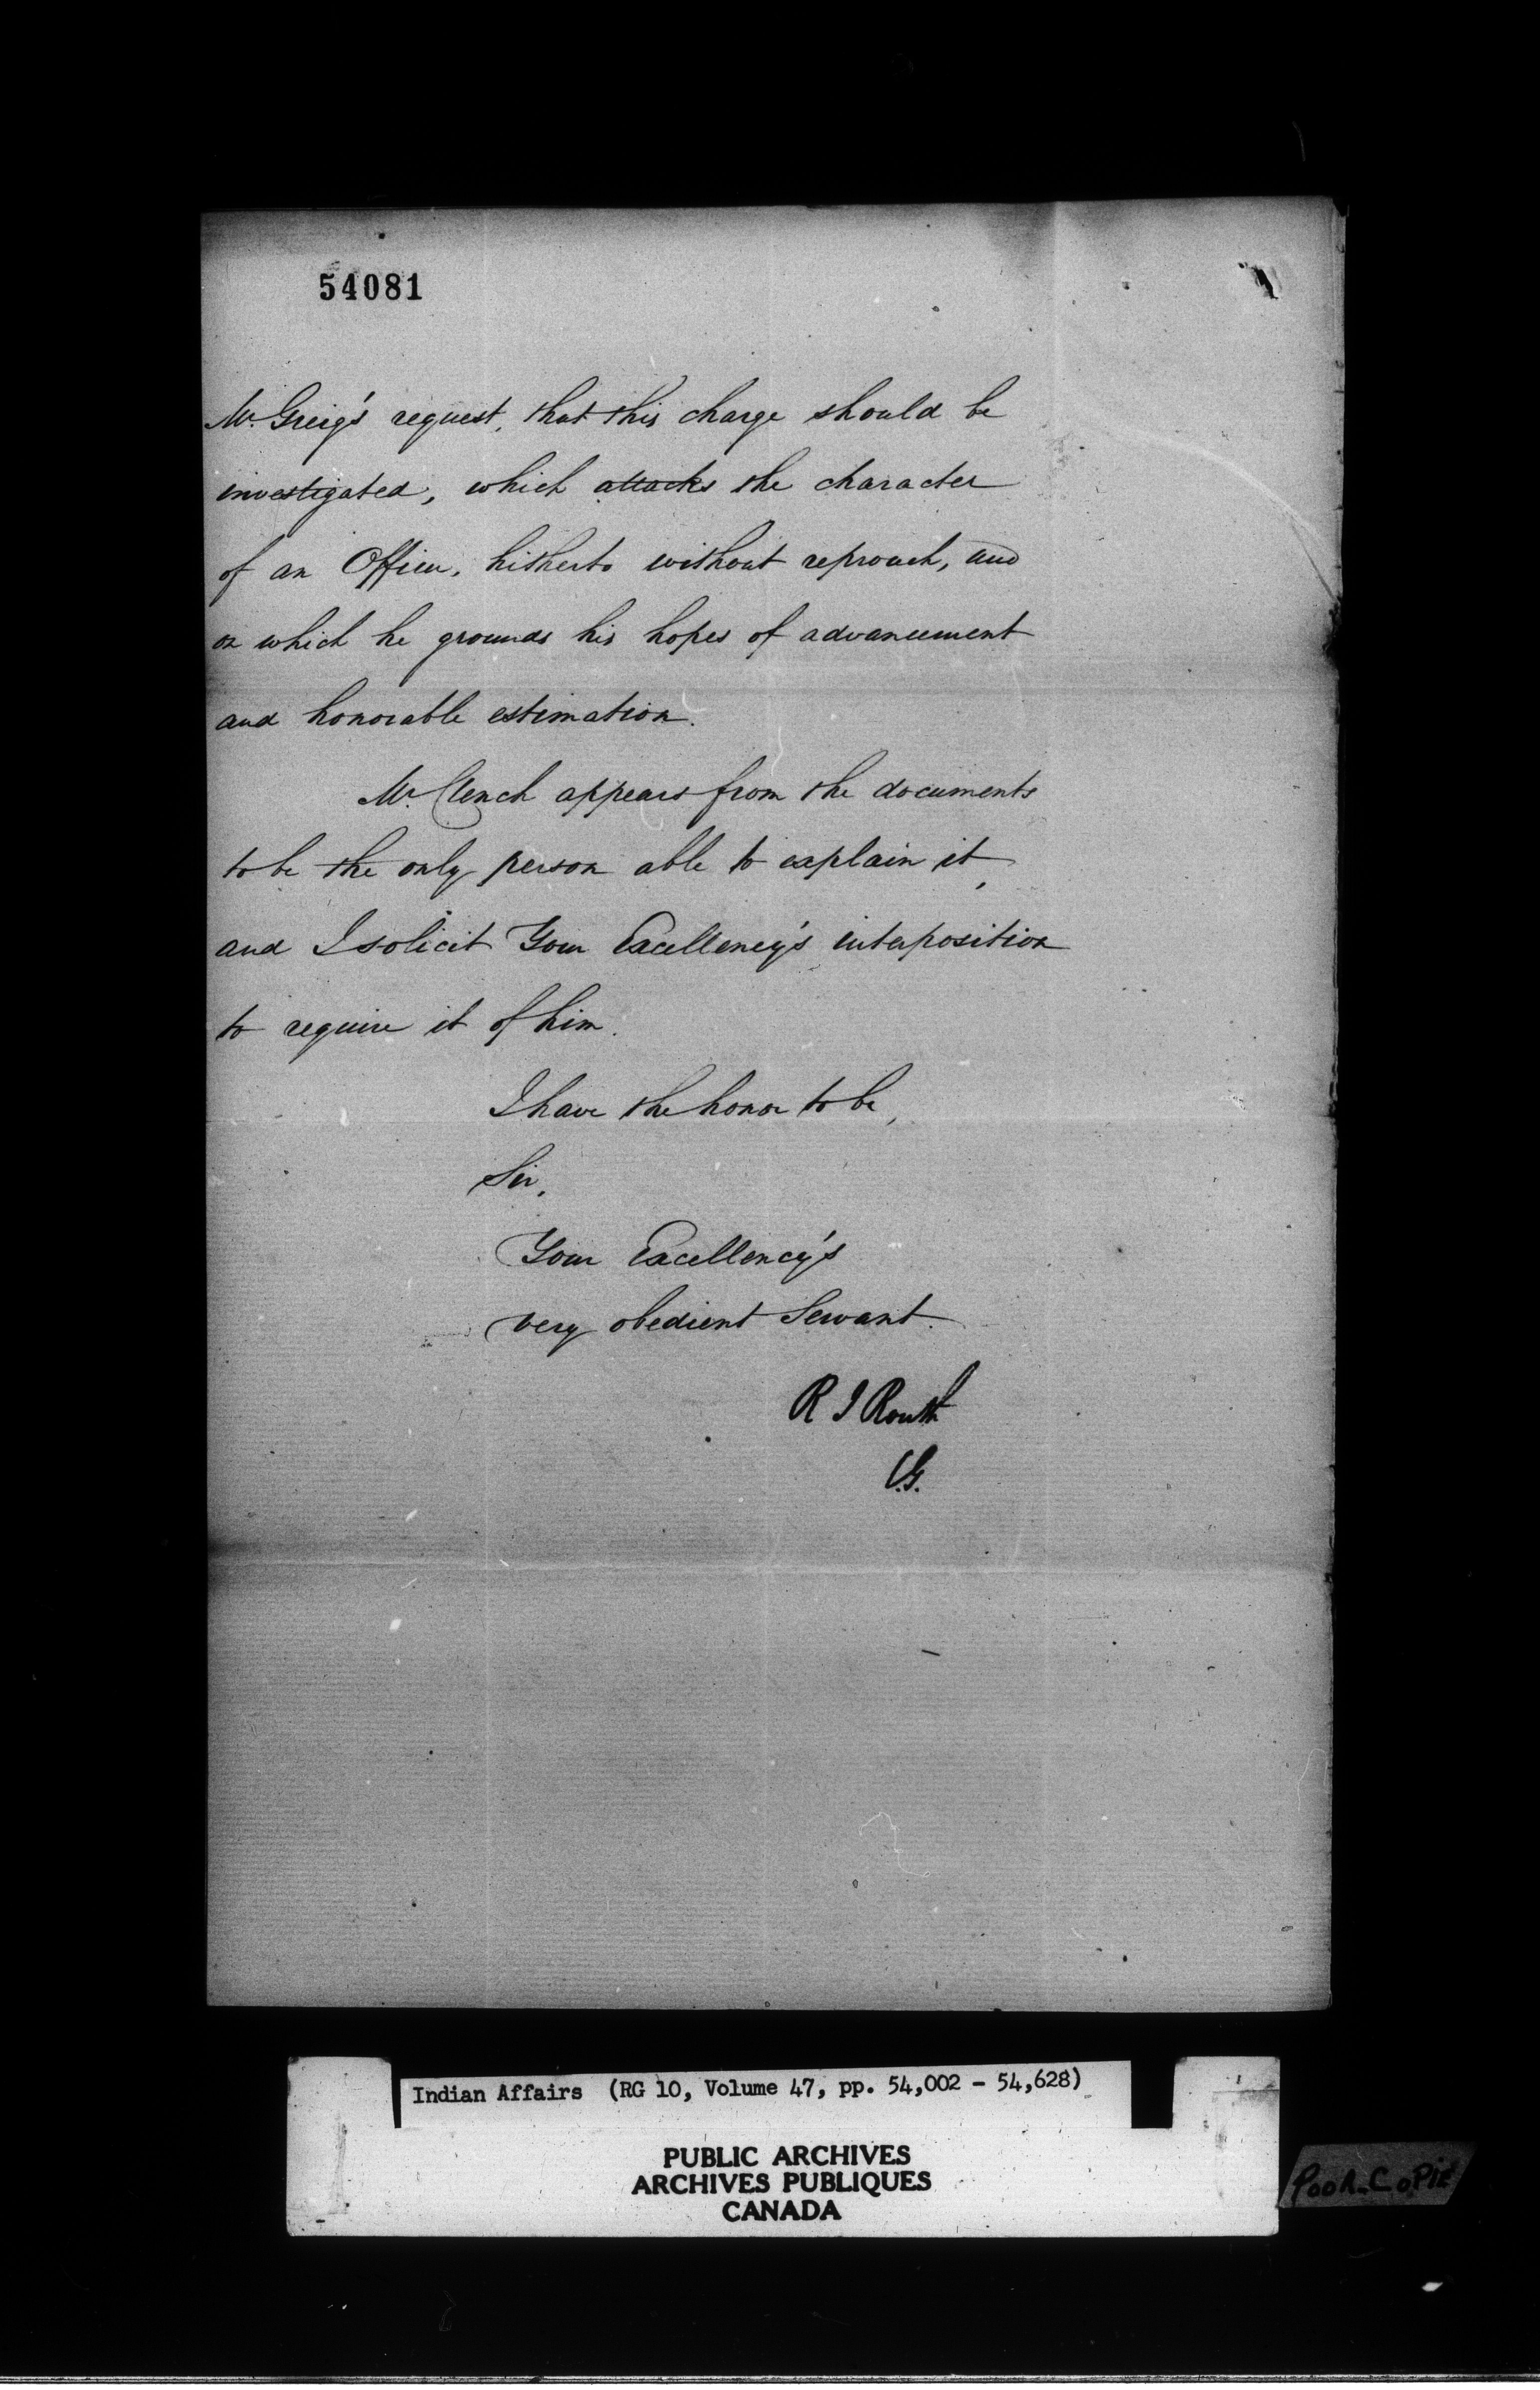 54081
Mr. Greig's request, that this charge should be
investigated, which attacks the character
of an Officer, hitherto without reproach, and
on which he grounds his hopes of advancement
and honorable estimation.
Mr. Clench appears from the documents
to be the only person able to explain it,
and I solicit Your Excellency's interposition
to require it of him.
I have the honor to be,
Sir,
Your Excellency's
very obedient Servant.
R I Routh
C.G.
Indian Affairs (RG 10, Volume 47, pp. 54,002 - 54,628)
PUBLIC ARCHIVES
ARCHIVES PUBLIQUES
CANADA
POOR COPIE